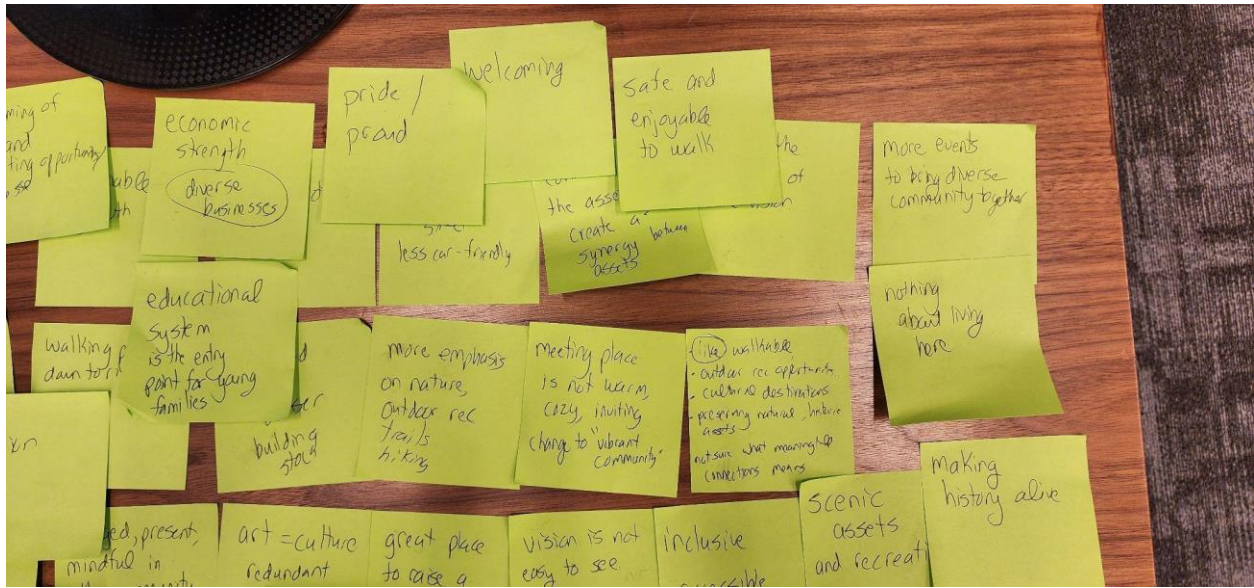 ming of
and
ting opportunity
economic
strength
diverse
businesses
pride /
proud
welcoming
safe and
enjoyable
to walk
more events
to bring diverse
community together
able
less car-friendly
the
create a
synergy between
assets
the
of
educational
system
is the entry
point for young
families
walking
building
more emphasis
on nature,
outdoor rec
trails
hiking
meeting place
is not warm,
cozy, inviting
change to "vibrant
community"
like walkable
- outdoor rec
- cultural destinations
- preserving natural, historic
assets
not sure what meaningful
connections means
nothing
about living
here
present,
mindful in
art = culture
redundant
great place
to raise a
vision is not
easy to see
inclusive
scenic
assets
and recreati
making
history alive